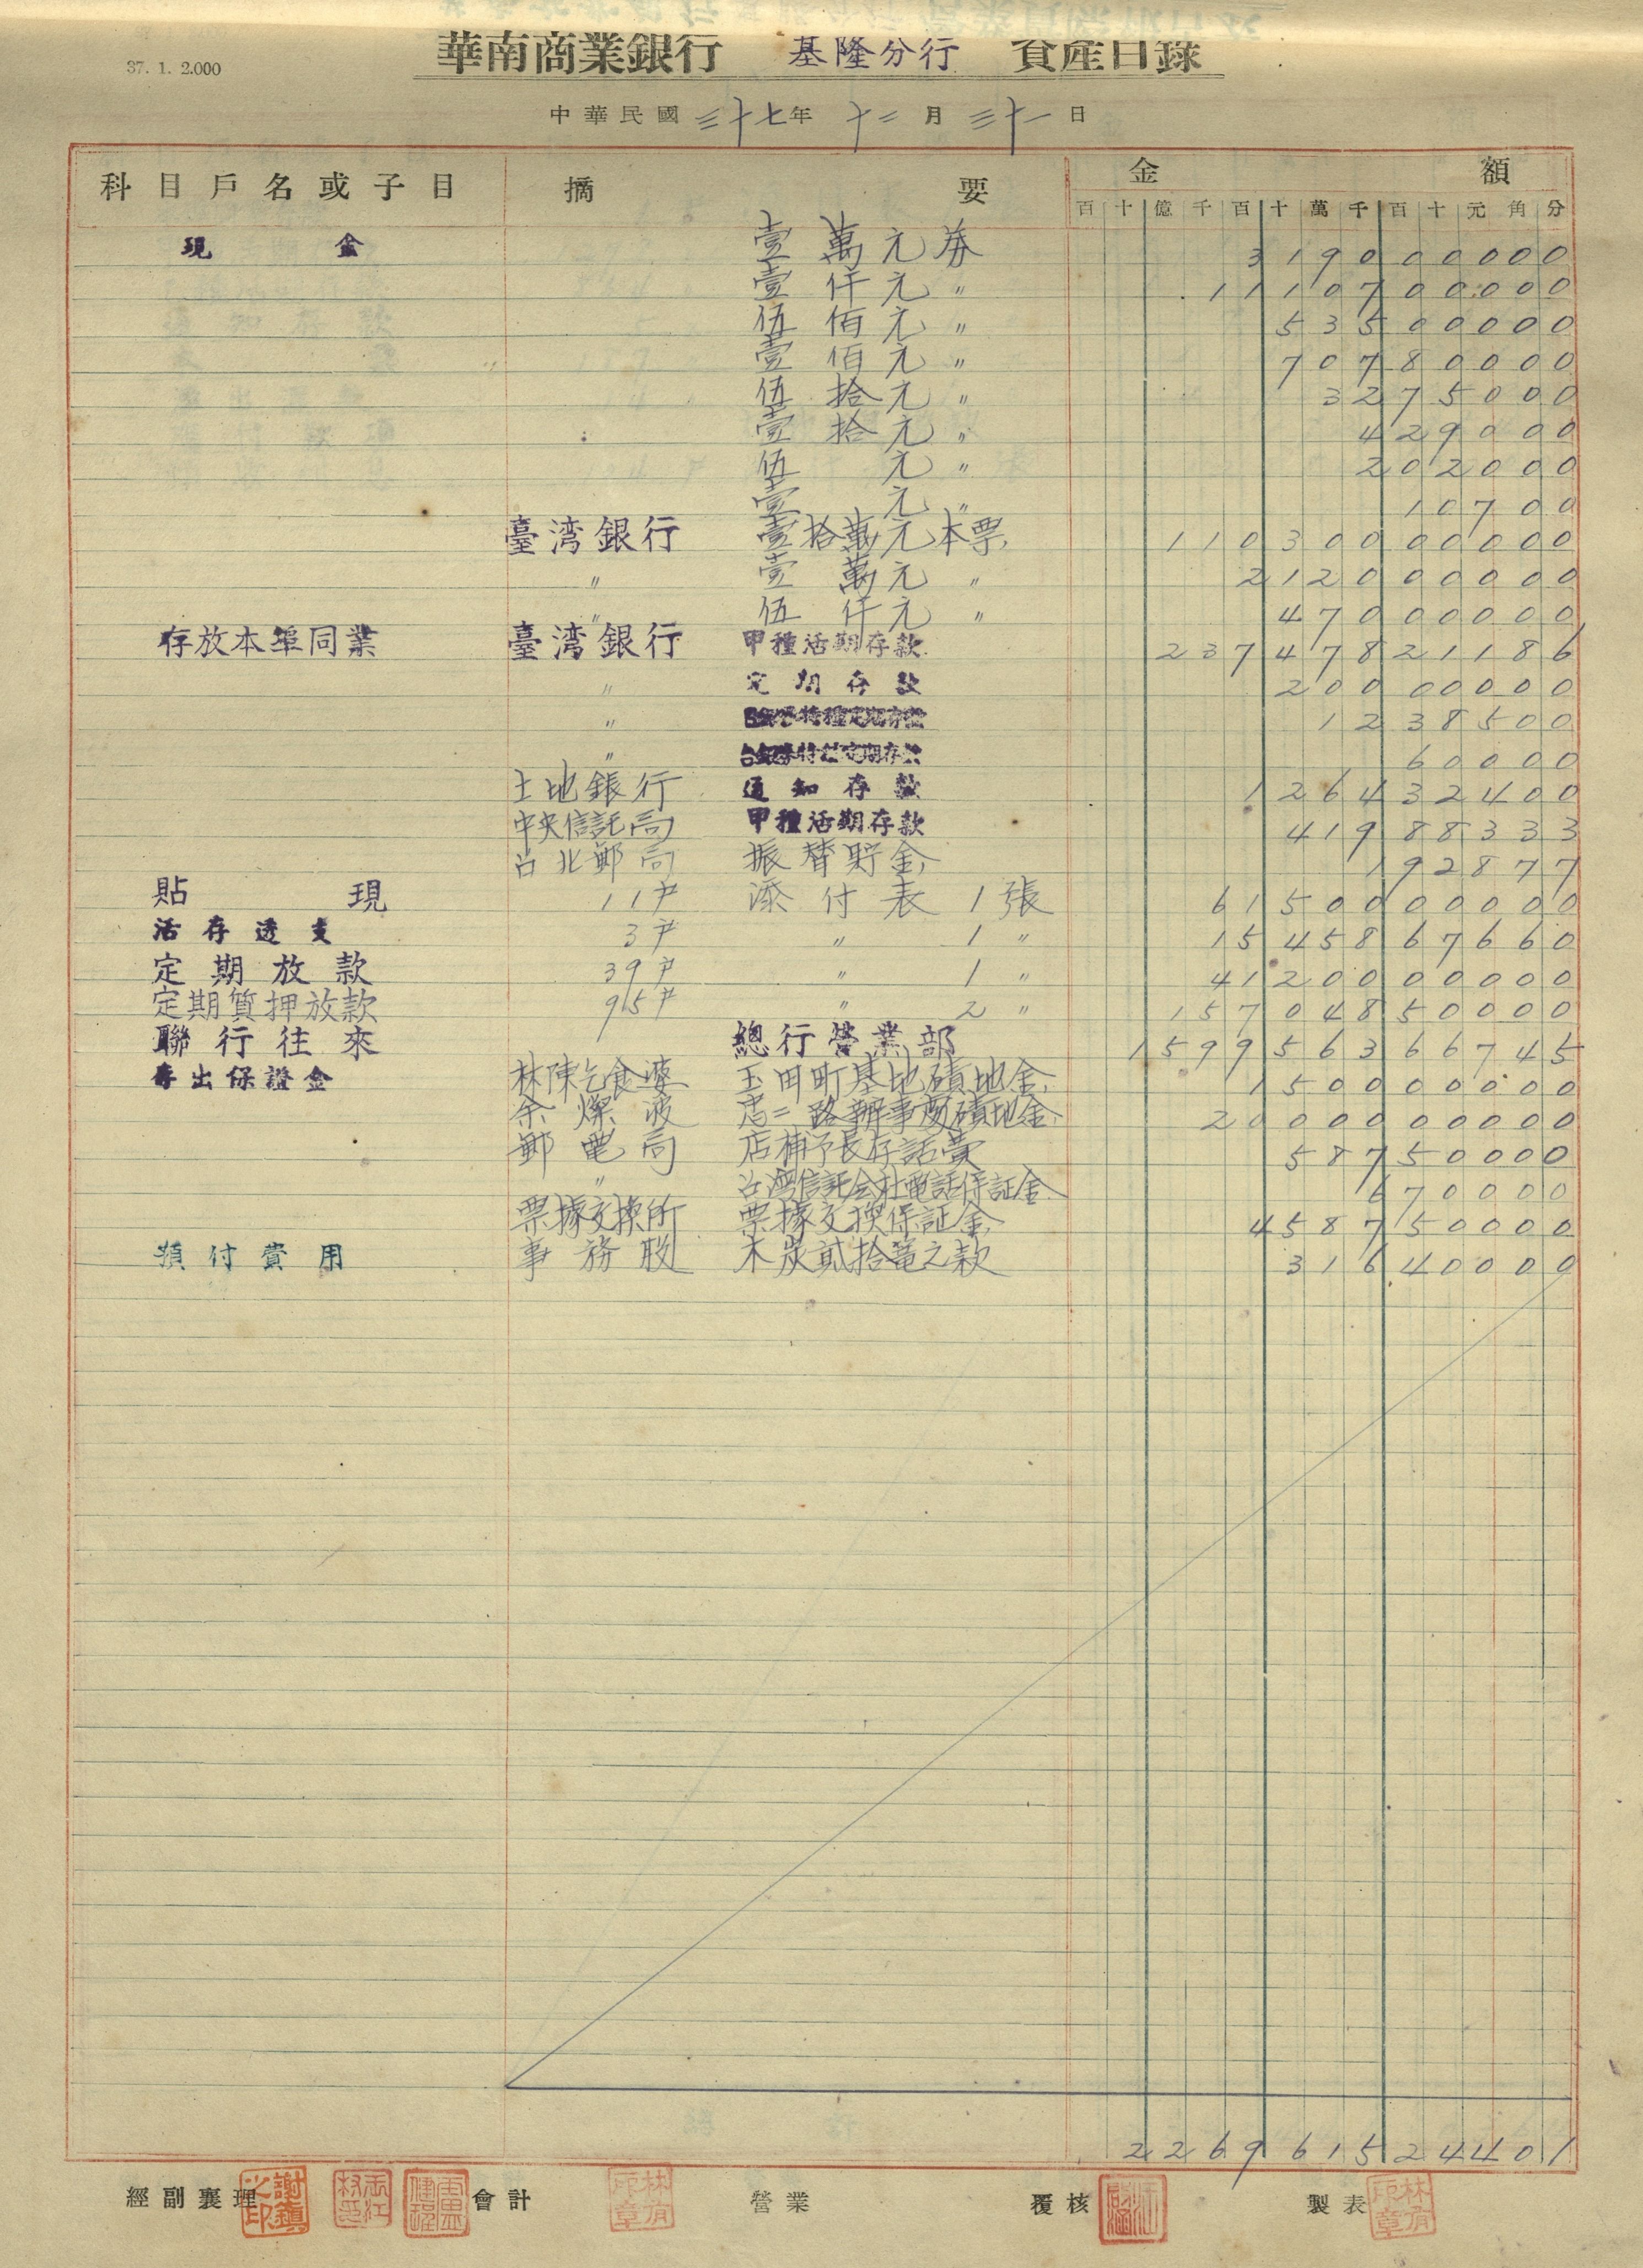 37. 1. 2.000
華南商業銀行 基隆分行 資產目錄
中華民國 三十七年 十二月 三十一日
科目戶名或子目 摘要 金額
百 十 億 千 百 十 萬 千 百 十 元 角 分
現金 壹萬元券 3190000000
壹仟元 〃 11107000000
伍佰元 〃 53500000
壹佰元 〃 70780000
伍拾元 〃 3275000
壹拾元 〃 429000
伍元 〃 202000
壹元 〃 10700
臺湾銀行 壹拾萬元本票 110300000000
〃 壹萬元 〃 2120000000
〃 伍仟元 〃 47000000
存放本埠同業 臺湾銀行 甲種活期存款 23747821186
〃 定期存款 20000000
〃 特種定期存款 1238500
〃 台銀券特種定期存款 60000
土地銀行 通知存款 126432400
中央信託局 甲種活期存款 41988333
台北郵局 振替貯金 192877
貼現 11戶 添付表 1張 6150000000
活存透支 3戶 〃 1 〃 1545867660
定期放款 39戶 〃 1 〃 4120000000
定期質押放款 95戶 〃 2 〃 15704850000
聯行往來 總行營業部 159956366745
存出保證金 林陳乞食婆 玉田町基地磧地金 150000000
余燦波 店二路辦事處磧地金 2000000000
郵電局 店補予長存話費 58750000
〃 台灣信託会社電話保証金 670000
票據交換所 票據交換保証金 458750000
預付費用 事務股 木炭貳拾篭之款 31640000
226961524401
經副襄理 謝鎮之印 會計 營業 覆核 製表